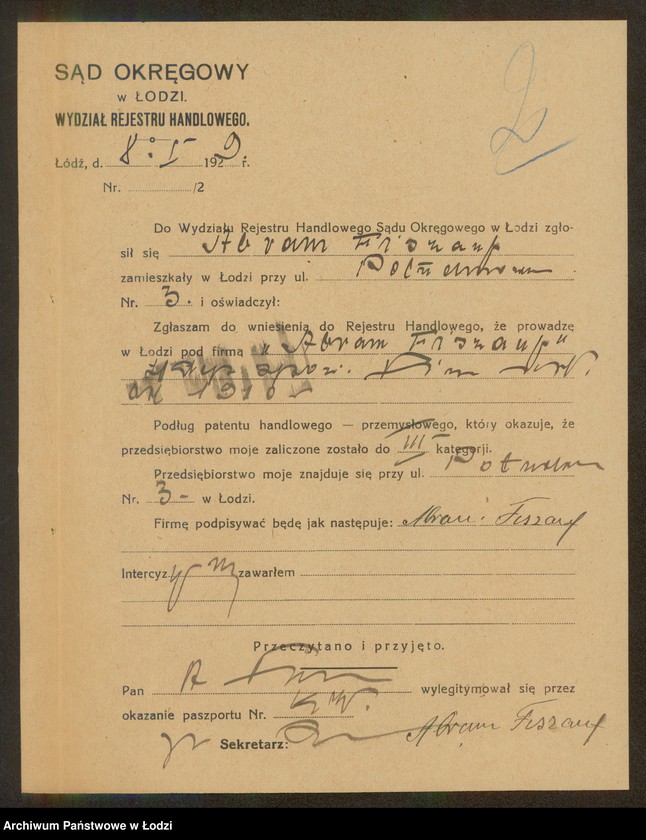 SĄD OKRĘGOWY
w ŁODZI.
WYDZIAŁ REJESTRU HANDLOWEGO.
2
Łódź, d. 8. I 1929. r.
Nr. /2
Do Wydziału Rejestru Handlowego Sądu Okręgowego w Łodzi zgło-
sił się Abram Fiszauf
zamieszkały w Łodzi przy ul.
Nr. 3. i oświadczył:
Zgłaszam do wniesienia do Rejestru Handlowego, że prowadzę
w Łodzi pod firmą „Abram Fiszauf"
Podług patentu handlowego — przemysłowego, który okazuje, że
przedsiębiorstwo moje zaliczone zostało do III kategorji.
Przedsiębiorstwo moje znajduje się przy ul.
Nr. 3 - w Łodzi.
Firmę podpisywać będę jak następuje: Abram Fiszauf
Intercyz zawarłem
Przeczytano i przyjęto.
Pan A wylegitymował się przez
okazanie paszportu Nr.
Sekretarz: Abram Fiszauf
Archiwum Państwowe w Łodzi